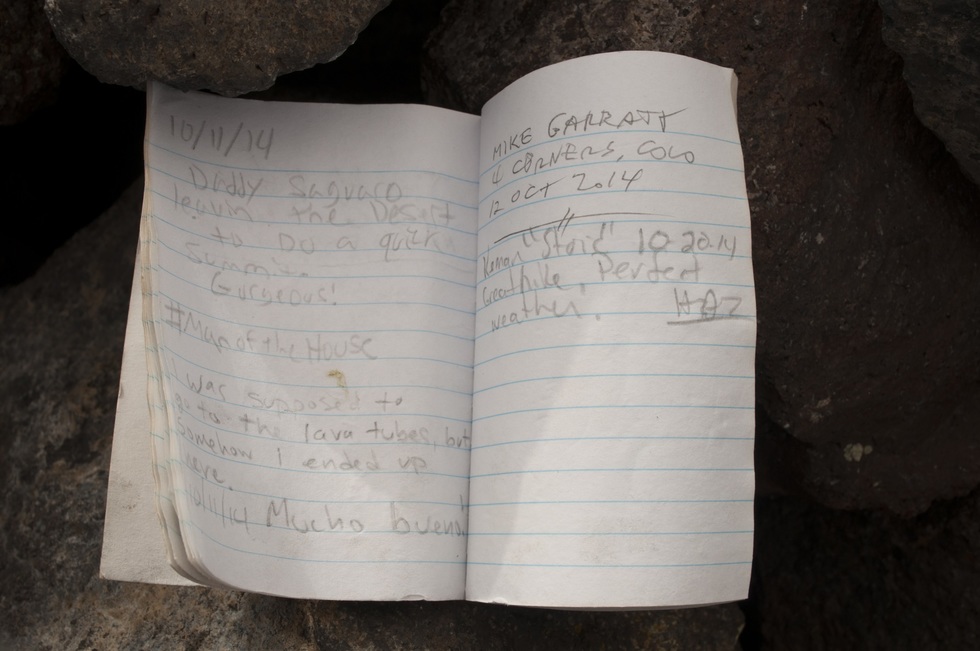 10/11/14
Daddy Saguaro
leavin the Desert
to Do a quick
Summit.
Gorgeous!
#Man of the House
I was supposed to
go to the lava tubes, but
Somehow i ended up
here.
10/11/14 Mucho bueno!
MIKE GARRATT
4 CORNERS, COLO
12 OCT 2014
"Stoic" 10-20-14
Great hike. Perfect
weather.